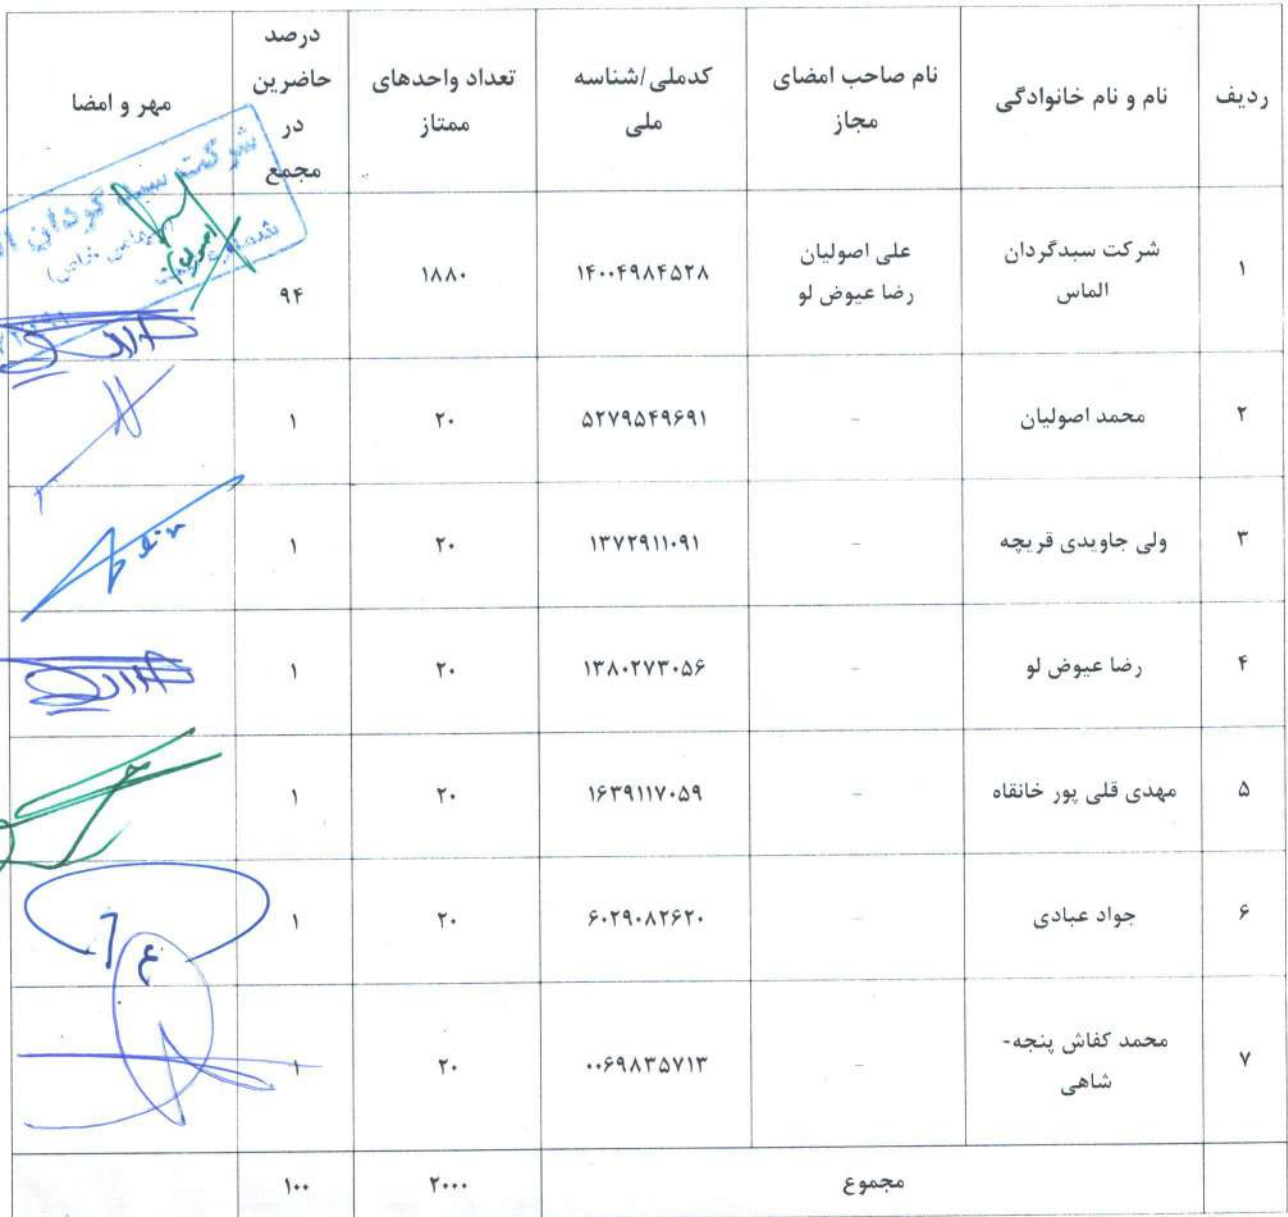 ردیف
نام و نام خانوادگی
نام صاحب امضای
مجاز
کدملی/شناسه
ملی
تعداد واحدهای
ممتاز
درصد
حاضرین
در
مجمع
مهر و امضا
۱
شرکت سبدگردان
الماس
علی اصولیان
رضا عیوض لو
۱۴۰۰۴۹۸۴۵۲۸
۱۸۸۰
۹۴
شرکت سبد گردان
۲
محمد اصولیان
-
۵۲۷۹۵۴۹۶۹۱
۲۰
۱
۳
ولی جاویدی قریچه
-
۱۳۷۲۹۱۱۰۹۱
۲۰
۱
۴
رضا عیوض لو
-
۱۳۸۰۲۷۳۰۵۶
۲۰
۱
۵
مهدی قلی پور خانقاه
-
۱۶۳۹۱۱۷۰۵۹
۲۰
۱
۶
جواد عبادی
-
۶۰۲۹۰۸۲۶۲۰
۲۰
۱
۷
محمد کفاش پنجه-
شاهی
-
۰۰۶۹۸۳۵۷۱۳
۲۰
۱
مجموع
۲۰۰۰
۱۰۰